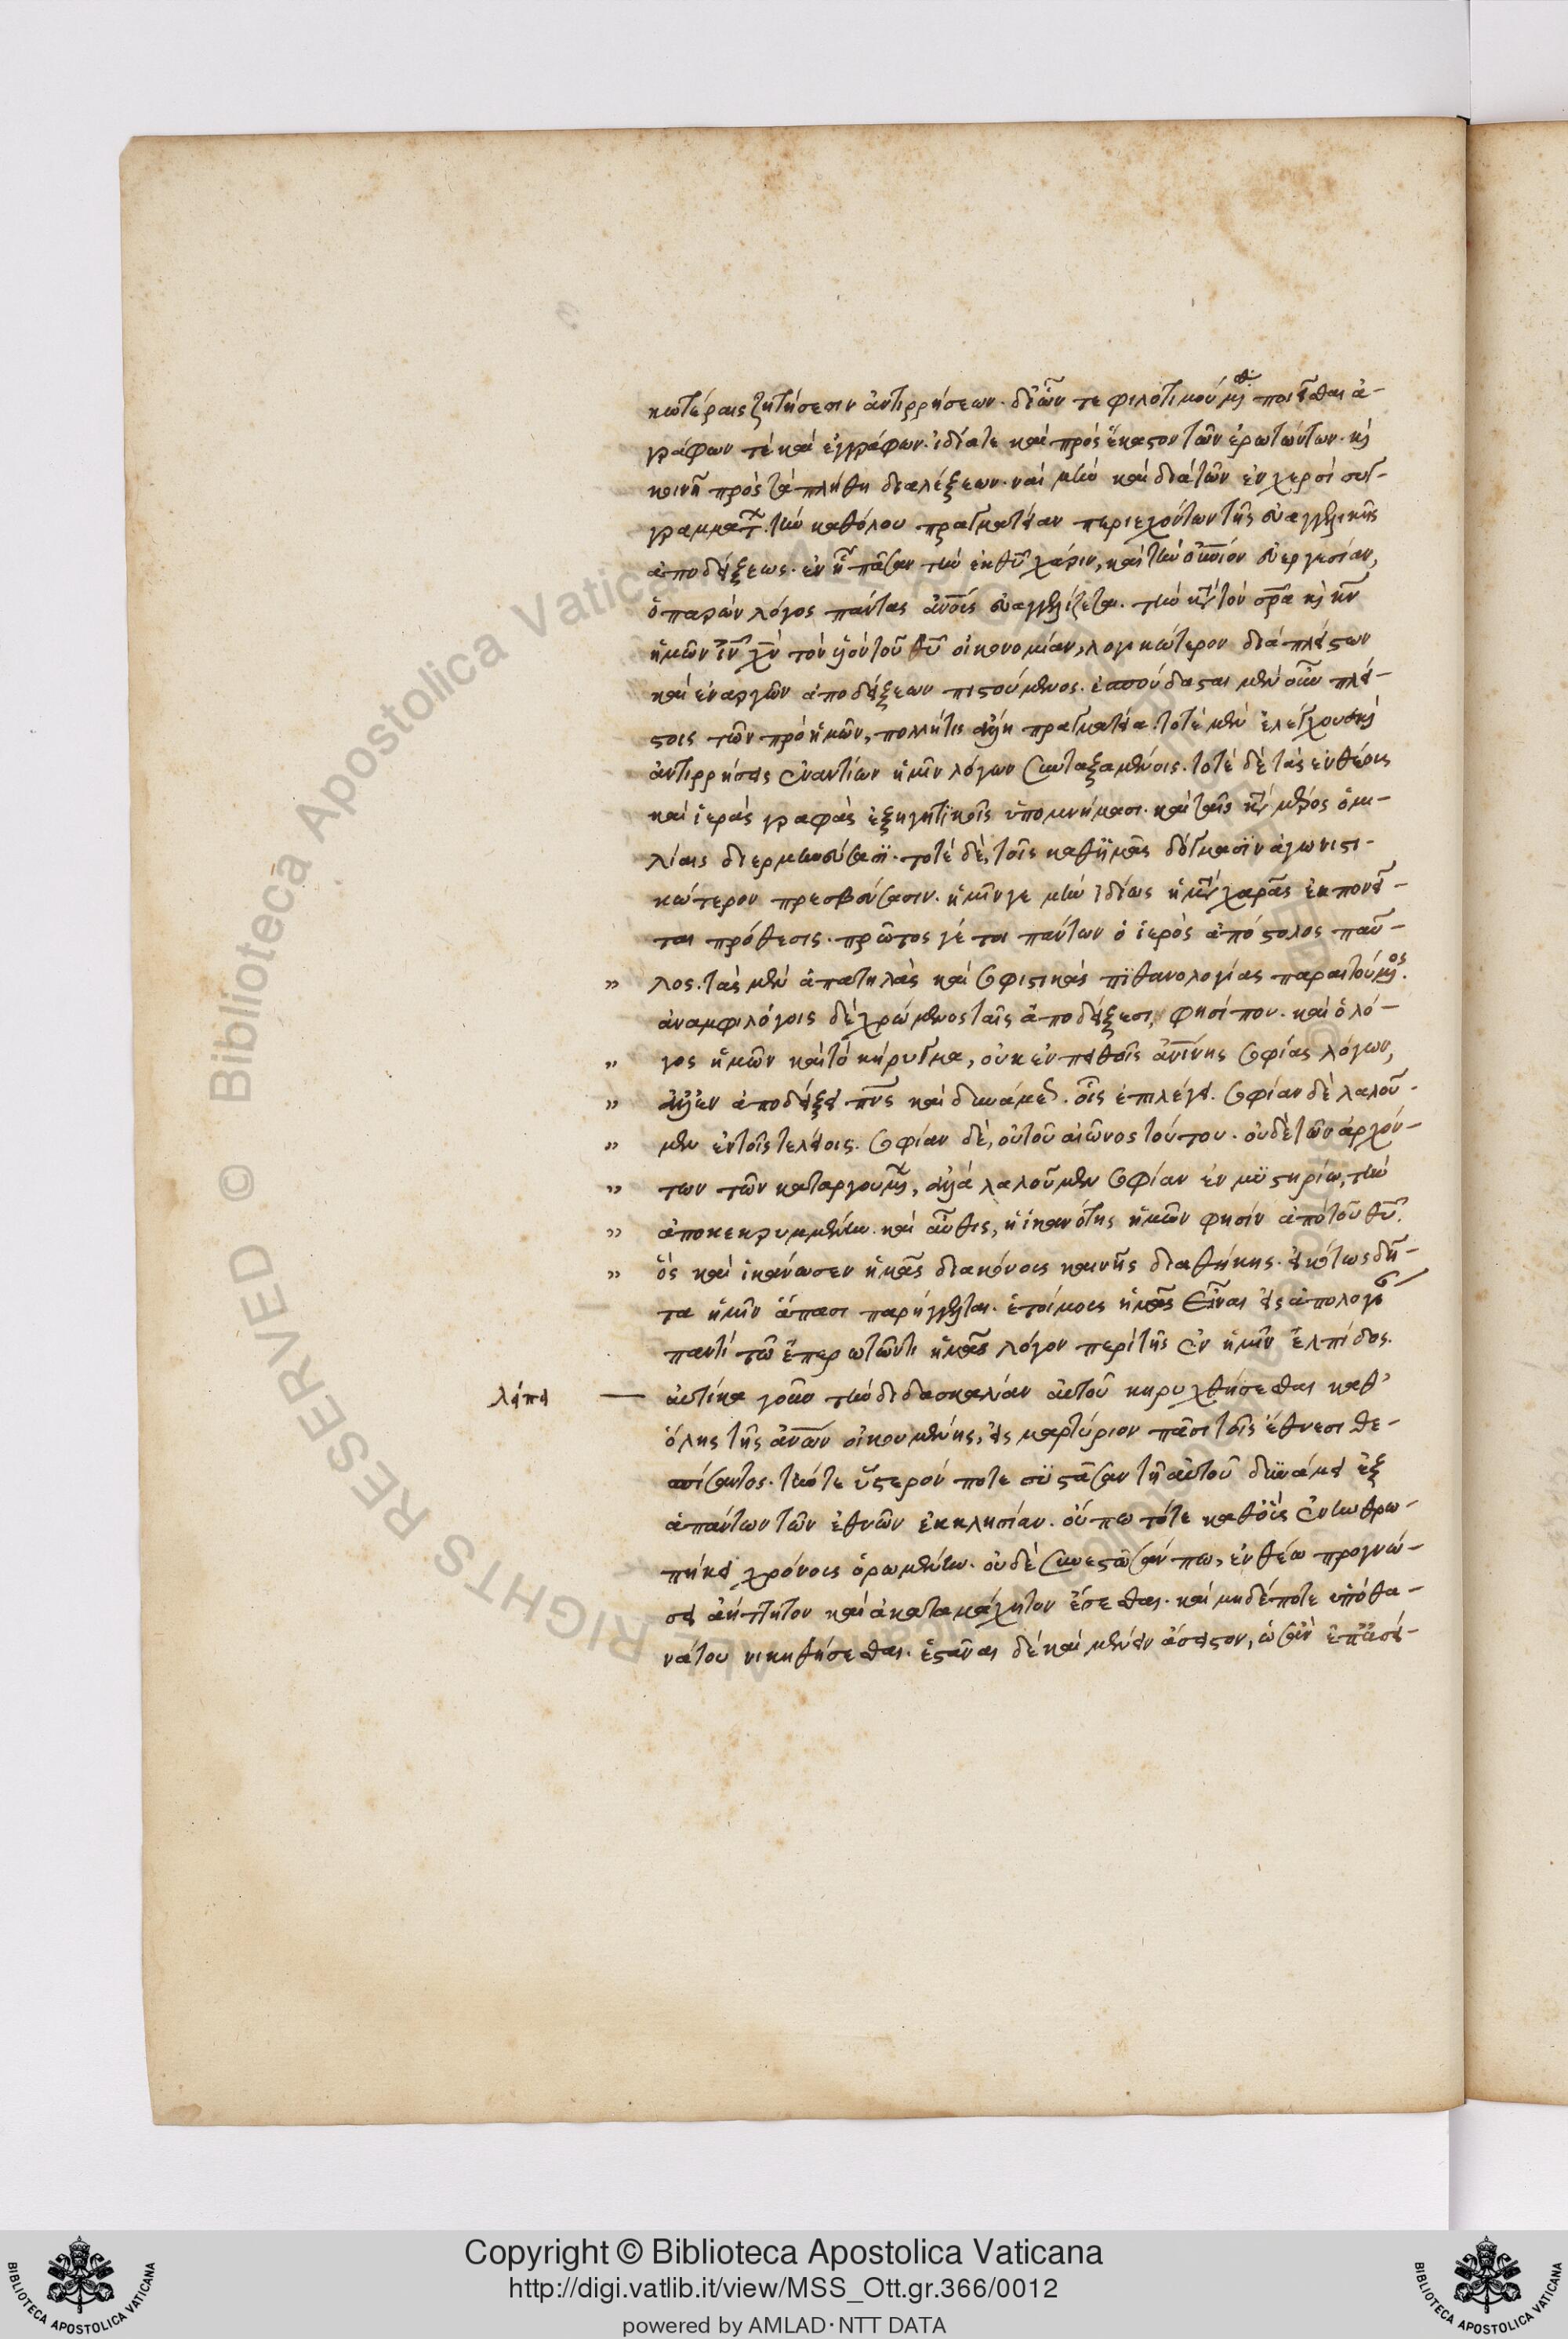 κωτέραις ζητήσεσιν ἀντιρρήσεων. δι ὧν τε φιλοτιμούμ ποιεῖσθαι ἀ-
γράφων τὲ καὶ ἐγγράφων. ἰδίᾳ τε καὶ πρὸς ἕκαστον τῶν ἐρωτώντων. κ
κοινῇ πρὸς τὰ πλήθη διαλέξεων. ναὶ μὴν καὶ διὰ τῶν ἐν χερσὶ συγ-
γραμμάτ. τὴν καθόλου πραγματείαν περιεχόντων τῆς εὐαγγελικῆς
ἀποδείξεως. ἐν ᾗ πᾶσαν τὴν ἐκ θῦ χάριν, καὶ τὴν οὐνιον εὐεργεσίαν,
ὁ παρὼν λόγος πάντας ἀνοις εὐαγγελίζεται. τὴν κτ τὸν σρα κ κν
ἡμῶν ιν χν τὸν υἱὸν τοῦ θῦ οἰκονομίαν, λογικώτερον διὰ πλείστων
καὶ ἐναργῶν ἀποδείξεων πιστούμενος. ἐσπούδασται μὲν οὖν πλεί-
στοις τῶν πρὸ ἡμῶν, πολλή τις ἄλλη πραγματεία. τοτὲ μὲν ἐλέγχους κ
ἀντιρρήσεις ἐναντίων ἡμῖν λόγων συνταξαμένοις. τοτὲ δὲ τὰς ἐνθέους
καὶ ἱερὰς γραφὰς ἐξηγητικοῖς ὑπομνήμασι. καὶ ταῖς κτ μέρος ὁμι-
λίαις διερμηνεύσασι. τοτὲ δὲ, τοῖς καθ ἡμᾶς δόγμασιν ἀγωνιστι-
κώτερον πρεσβεύσασιν. ἡμῖν γε μὴν ἰδίως ἡ μτ χεῖρας ἐκπονεῖ-
ται πρόθεσις. πρῶτός γέ τοι πάντων ὁ ἱερὸς ἀπόστολος παῦ-
" λος. τὰς μὲν ἀπατηλὰς καὶ σοφιστικὰς πιθανολογίας παραιτούμος.
ἀναμφιλόγοις δὲ χρώμενος ταῖς ἀποδείξεσι, φησί που. καὶ ὁ λό-
" γος ἡμῶν καὶ τὸ κήρυγμα, οὐκ ἐν πειθοῖς ἀνίνης σοφίας λόγων,
" ἀλλ ἐν ἀποδείξει πνς καὶ δυνάμε. οἷς ἐπιλέγει. σοφίαν δὲ λαλοῦ-
" μεν ἐν τοῖς τελείοις. σοφίαν δὲ, οὐ τοῦ αἰῶνος τούτου. οὐδὲ τῶν ἀρχόν-
" των τῶν καταργουμ, ἀλλὰ λαλοῦμεν σοφίαν ἐν μυστηρίῳ, τὴν
" ἀποκεκρυμμένην. καὶ αὖθις, ἡ ἱκανότης ἡμῶν φησὶν ἀπὸ τοῦ θῦ.
" ὃς καὶ ἱκάνωσεν ἡμᾶς διακόνους καινῆς διαθήκης. εἰκότως δῆ-
τα ἡμῖν ἅπασι παρήγγελται. ἑτοίμους ἡμᾶς εἶναι εἰς ἀπολογ
παντὶ τῷ ἐπερωτῶντι ἡμᾶς λόγον περὶ τῆς ἐν ἡμῖν ἐλπίδος.
λείπει — αὐτίκα γοῦν τὴν διδασκαλίαν αὐτοῦ κηρυχθήσεσθαι καθ᾽
ὅλης τῆς ἀνων οἰκουμένης, εἰς μαρτύριον πᾶσι τοῖς ἔθνεσι θε-
σπίσαντος. τήν τε ὕστερόν ποτε συστᾶσαν τῇ αὐτοῦ δυνάμει ἐξ
ἁπάντων τῶν ἐθνῶν ἐκκλησίαν. οὔπω τότε καθ οὓς ἐνηνθρω-
πήκει χρόνους ὁρωμένην. οὐδὲ συνεστῶσάν πω, ἐνθέῳ προγνώ-
σει ἀήττητον καὶ ἀκαταμάχητον ἔσεσθαι. καὶ μηδέποτε ὑπὸ θα-
νάτου νικηθήσεσθαι. ἑστάναι δὲ καὶ μένειν ἄσειστον, ὡσὰν ἐπ ἀσεί-
Copyright © Biblioteca Apostolica Vaticana
http://digi.vatlib.it/view/MSS_Ott.gr.366/0012
powered by AMLAD·NTT DATA
BIBLIOTECA APOSTOLICA VATICANA
BIBLIOTECA APOSTOLICA VATICANA
Biblioteca Apostolica Vaticana
ALL RIGHTS RESERVED ©